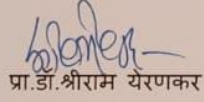 प्रा.डॉ.श्रीराम येरणकर